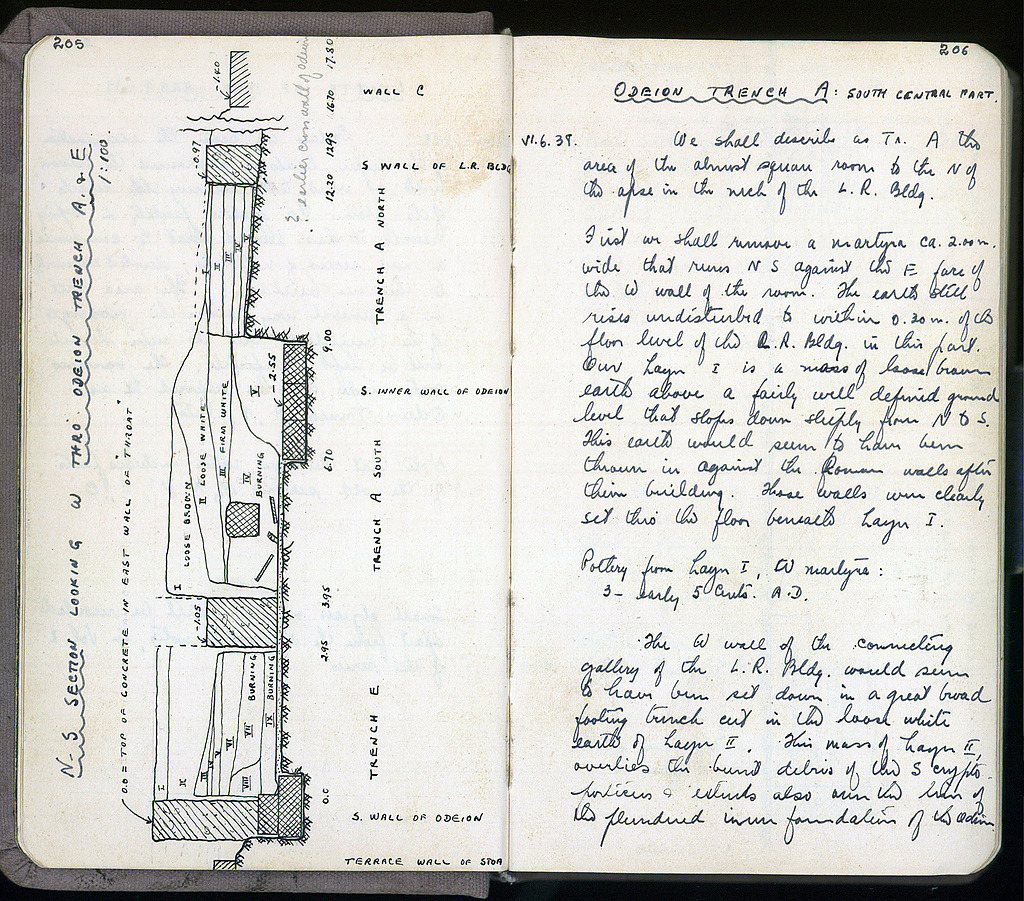 205
N-S SECTION LOOKING W THRO ODEION TRENCH A & E
1:100
0.0 = TOP OF CONCRETE IN EAST WALL OF "THROAT"
-1.40
WALL C
17.80
16.70
? earlier cross wall of odeion
-0.97
S WALL OF L.R. BLDG
12.95
12.20
I
II
III
IV
V
TRENCH A NORTH
9.00
-2.55
S. INNER WALL OF ODEION
6.70
I LOOSE BROWN
II LOOSE WHITE
III FIRM WHITE
IV BURNING
V
TRENCH A SOUTH
3.95
-1.05
2.95
I
II
III
IV
V
VI
VII BURNING
VIII
IX BURNING
TRENCH E
0.0
S. WALL OF ODEION
TERRACE WALL OF STOA
206
ODEION TRENCH A: SOUTH CENTRAL PART.
VI.6.39. We shall describe as Tr. A the
area of the almost square room to the N of
the apse in the neck of the L.R. Bldg.
First we shall remove a martyra ca. 2.00 m.
wide that runs N S against the E face of
the W wall of the room. The earth still
rises undisturbed to within 0.30 m. of the
floor level of the L.R. Bldg. in this part.
Our Layer I is a mass of loose brown
earth above a fairly well defined ground
level that slopes down steeply from N to S.
This earth would seem to have been
thrown in against the Roman walls after
their building. These walls were clearly
set thro the floor beneath Layer I.
Pottery from Layer I, W martyra:
3 - early 5 Cents. A.D.
The W wall of the connecting
gallery of the L.R. Bldg. would seem
to have been set down in a great broad
footing trench cut in the loose white
earth of Layer II. This mass of Layer II
overlies the burnt debris of the S crypto-
porticus & extends also over the line of
the plundered inner foundation of the Odeion